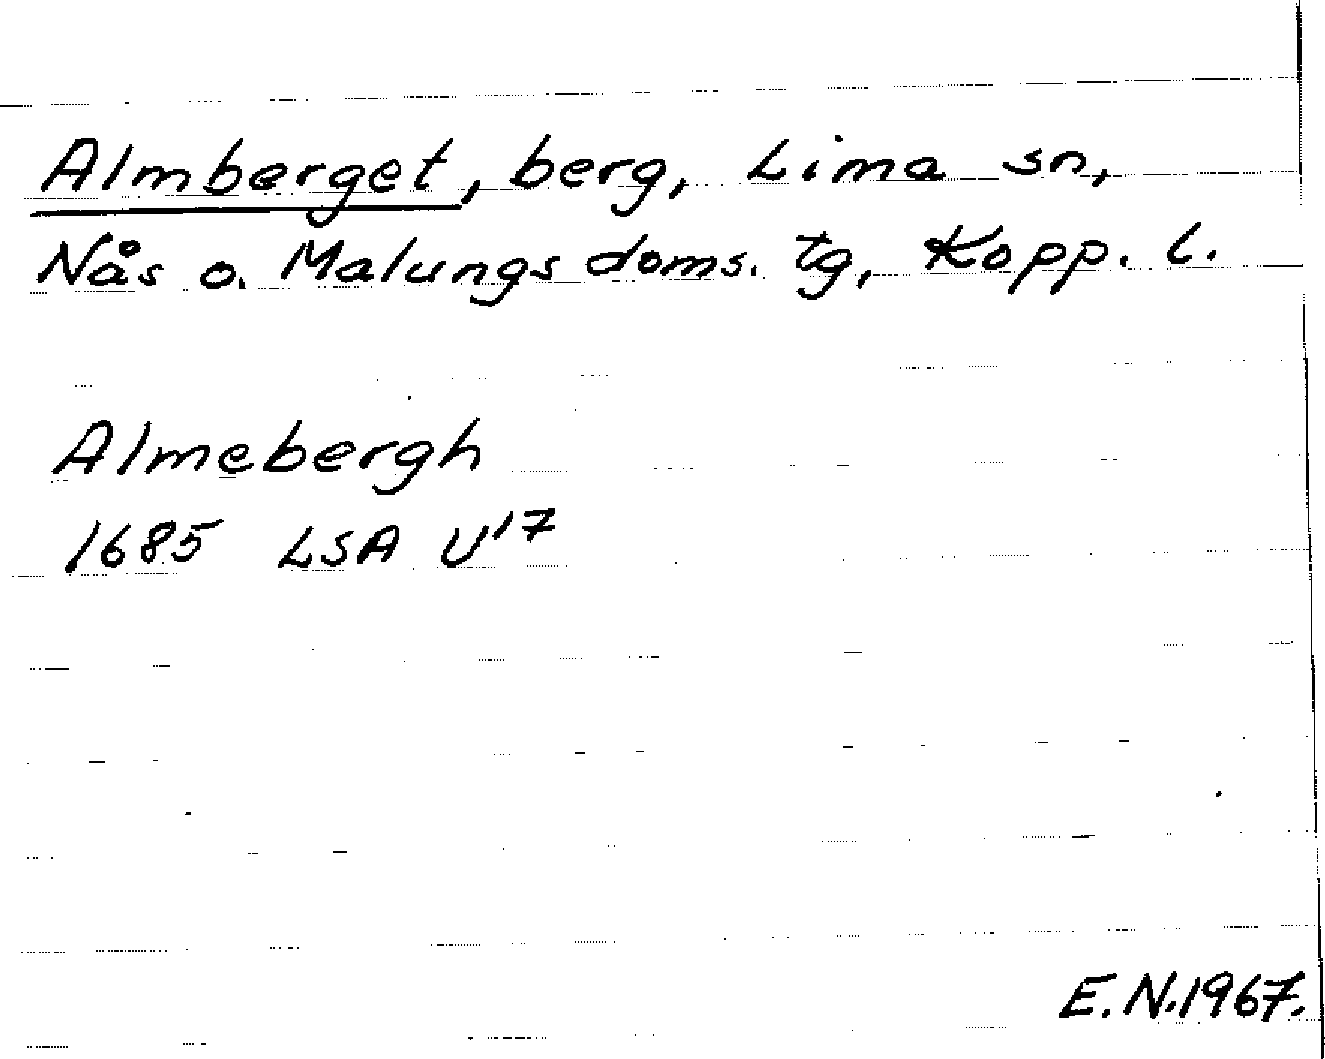 Almberget, berg, Lima sn,
Nås o. Malungs doms. tg, Kopp. l.
Almebergh
1685 LSA U¹⁷
E.N.1967.